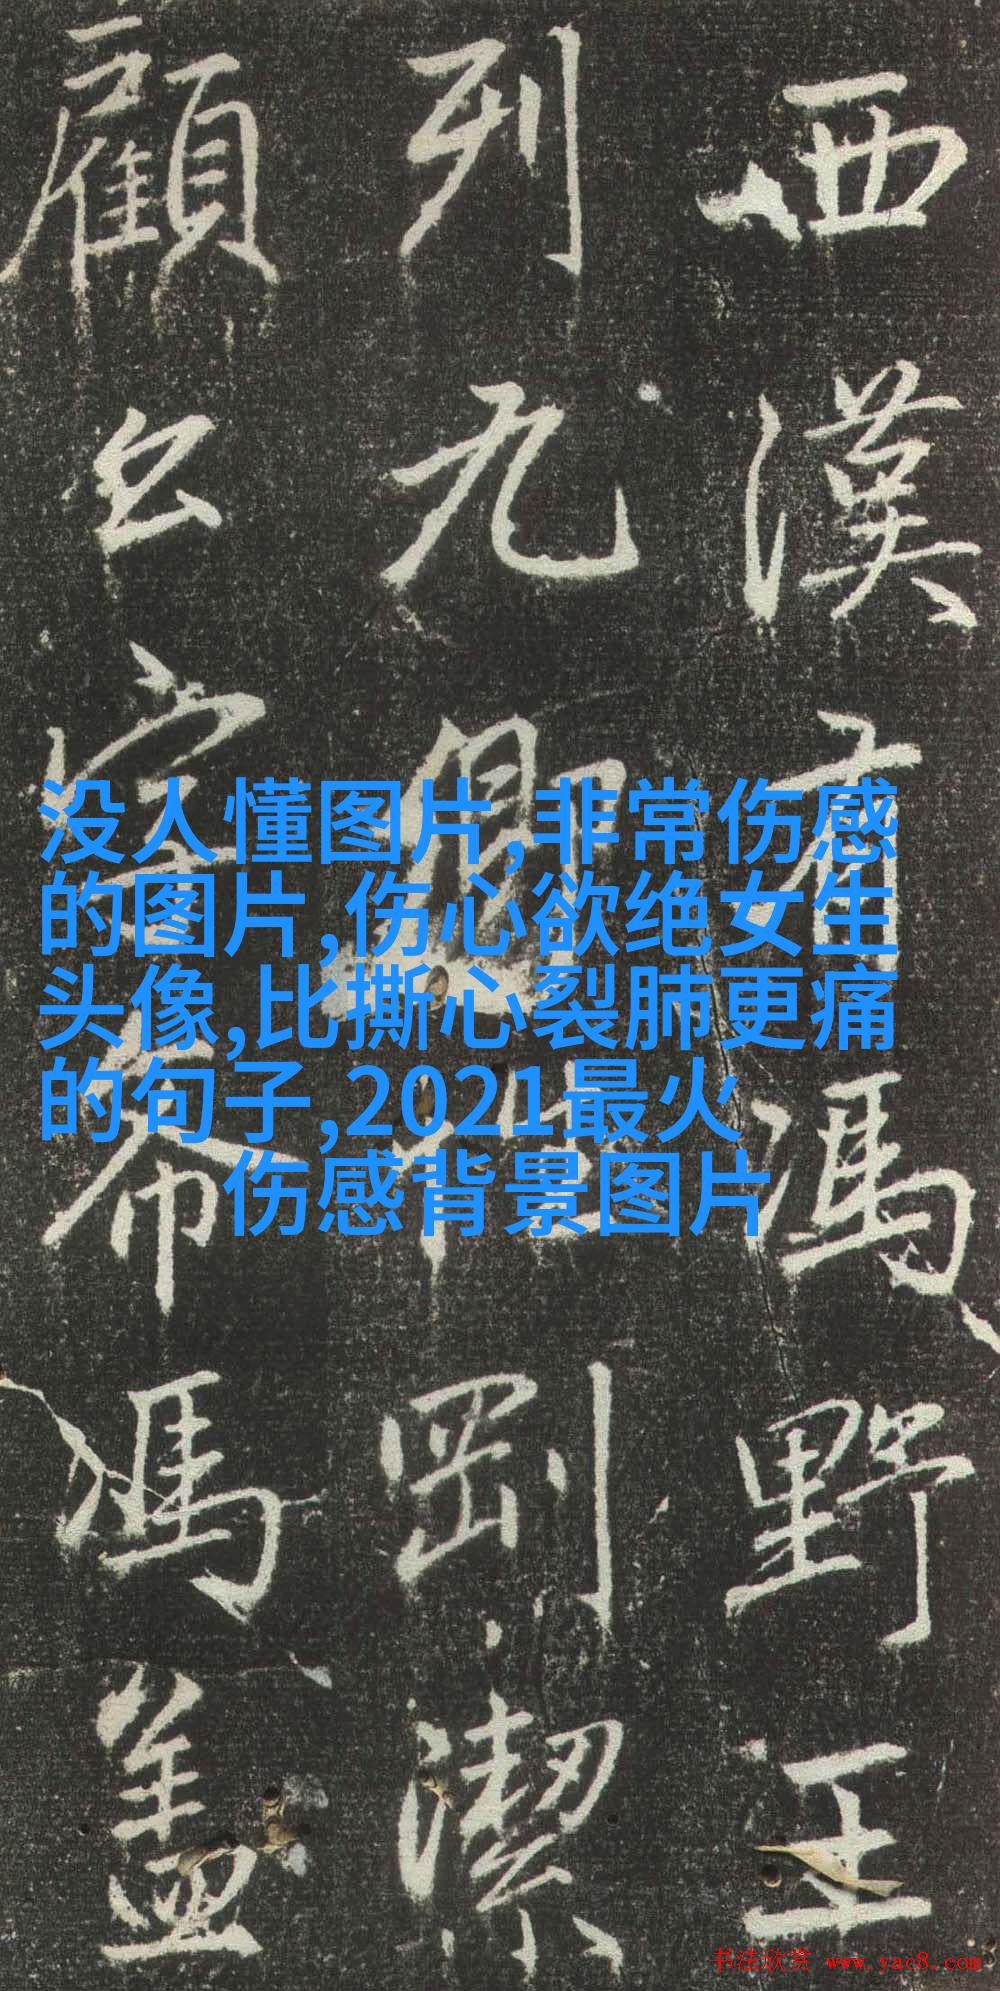 西漢有馮野王
列九卿剛潔
顧公字希馮蓋
没人懂图片,非常伤感
的图片,伤心欲绝女生
头像,比撕心裂肺更痛
的句子,2021最火
伤感背景图片
书法欣赏 www.yac8.com